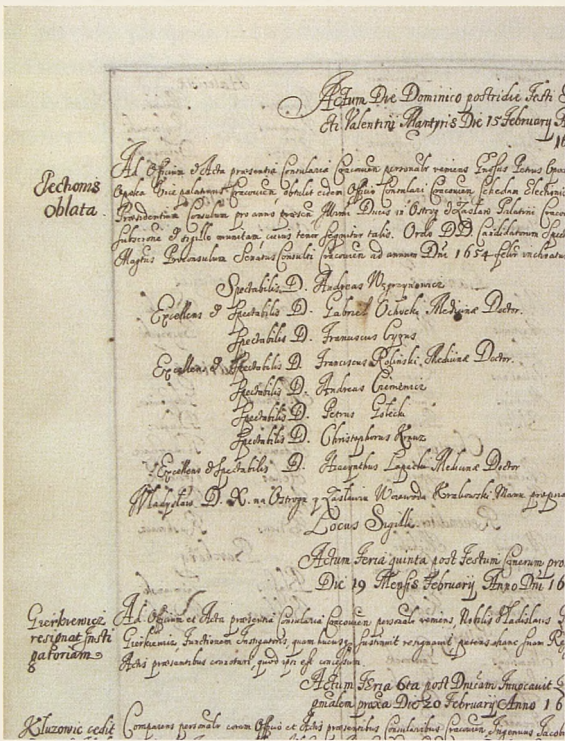 Actum Die Dominico postridie Festi S
cti Valentini Martyris Die 15 February A
16
Electionis
oblata
Ad Officium & Acta præsentia Consularia Cracovien personalr veniens
Petrus
Vice palatinus Cracovien, obtulit eidem Officio Consulari Cracovien Schedam Electionis
Præsidentium Consulum pro anno præsen Illrmi Ducis in Ostrog & Zaslaw Palatini Craco
Subscrione & sigillo munitam, cuius tenor sequitur talis. Ordo D.D. Candidatorum Spect
Magcus Proconsulum Senatus Consulti Cracovien ad annum Dni 1654
Spectabilis D. Andreas
Excellens & Spectabilis D. Gabriel Ochocki Medicinæ Doctor.
Spectabilis D. Franciscus Cyrus
Excellens & Spectabilis D. Franciscus Roliński, Medicinæ Doctor.
Spectabilis D. Andreas Cieniewicz
Spectabilis D. Petrus Gołecki
Spectabilis D. Christophorus Krauz
Excellens & Spectabilis D. Hacynthus Łopacki Medicinæ Doctor
Władysław D. X. na Ostrogu y Zasławiu Woiewoda Krakowski Manu propria
Locus Sigilli.
Actum Feria quinta post Festum Cinerum pro
Die 19 Mensis February Anno Dni 16
Gierkiewicz
resignat Insti
gatoriam
Ad Officium et Acta præsentia Consularia Cracovien personalr veniens, Nobilis Vladislaus
Gierkiewicz, Functionem Instigatoris, quam hucusq sustinuit resignavit, petens hanc suam Re
Actis præsentibus connotari, quod ipsi est concessum
Actum Feria 6ta post Dnicam Invocavit
gesimalem proxa Die 20 February Anno 16
Kluzowic cedit
Comparens personalr coram Officio et Actis præsentibus Consularibus Cracovien Ingenuus Jacob